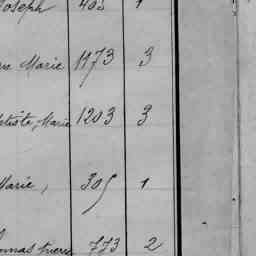 Joseph 403 1
re Marie 1173 3
ptiste, Marie 1203 3
Marie, 305 1
homas pierre 773 2